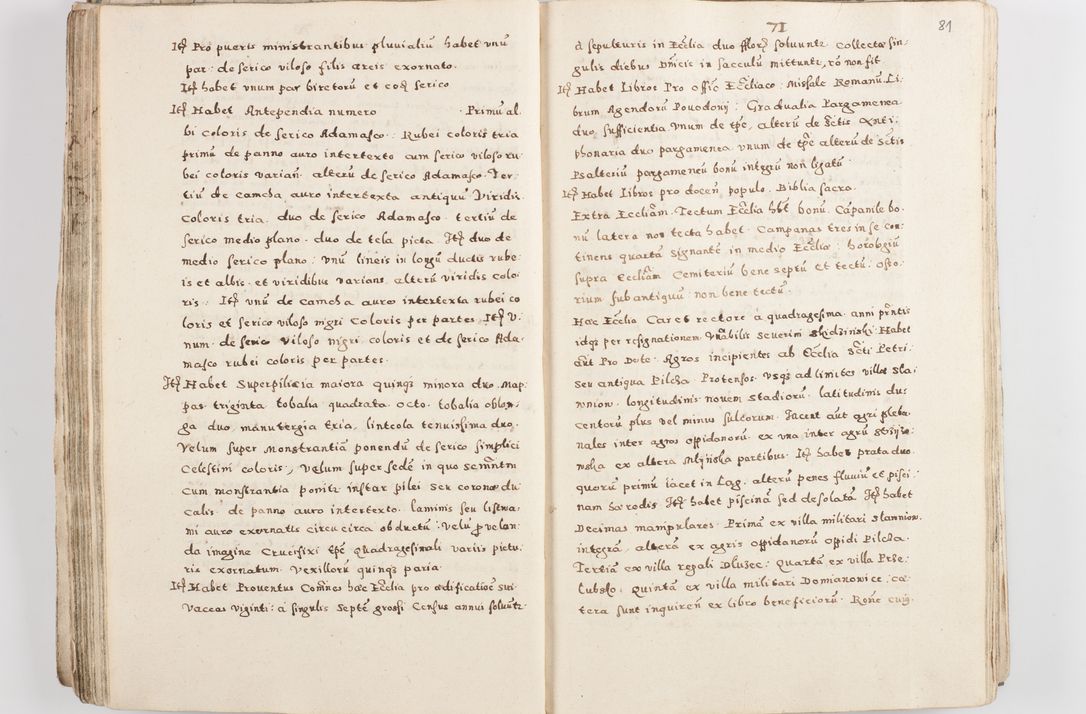 Itẽ Pro pueris ministrantibus pluvialiũ habet vnũ
par: de serico viloso filis areis exornato.
Itẽ habet vnum par biretorũ et serico
Itẽ Habet Antependia numero · Primũ al,
bi coloris de serico Adamasco: Rubei coloris tria
primũ de panno auro intertexto cum serico viloso ru,
bei coloris varian̄ alterũ de serico Adamasco. Ter,
tiũ de camcha auro intertexta antiquũ Viridis
coloris tria. duo de serico Adamasco. tertiũ de
serico medio plano. duo de tela picta. Itẽ duo de
medio serico plano: vnũ lineis in longũ ductis rube,
is et albis. et viridibus varians alterũ viridis colo
ris. Itẽ vnũ de camcha auro intertexta rubei co
loris et serico viloso nigri coloris per partes Itẽ V,
num de serico viloso nigri coloris et de serico Ada,
masco rubei coloris per partes.
Itẽ Habet Superpilicia maiora quinqȝ minora duo. Map,
pas triginta tobalia quadrata octo. tobalia oblon,
ga duo, manutergia tria, linteola tenuissima duo.
Velum super Monstrantiã ponendũ de serico simplici
Celestini coloris, Velum super sedẽ in quo
cum monstrantia ponitr instar pilei seu coronæ du
calis de panno auro intertexto. laminis seu listwa,
mi auro exornatis circũ circa obductũ. Velũ ꝓ velan,
da imagine Crucifixi tp̃e Quadragesimali variis pictu,
ris exornatum. Vexillorũ quinqȝ paria.
Itẽ Habet Prouentus Com̃nes hæc Ecclia pro ædificatiõe sui
Vaccas viginti: à singulis septẽ grossi Census annui soluũtr
71
81
à sepulturis in Ecc̃lia duo soluuntr collectæ sin,
gulis diebus D̃nicis in sacculũ mittuntr, rõ non fit
Itẽ Habet Libros Pro offic̃ Ecc̃liaco: Missale Romanũ Li,
brum Agendorũ Povodovij: Gradualia Pargamenea
duo sufficientia Vnum de tp̃e, alterũ de S̃ctis Anti,
phonaria duo pargamenea vnum de tp̃e alterũ de S̃ctis
Psalteriũ pargameneũ bonũ integrũ non ligatũ
Itẽ Habet Libros pro docen̄ populo. Biblia sacra.
Extra Eccliam. Tectum Ecc̃lia hẽt bonũ. Cãpanile bo,
nũ latera non tecta habet. Campanas tres in se con,
tinens quartã signantẽ in medio Ecc̃liæ: horologiũ
supra Eccliam Cemiteriũ bene septũ et tectũ. Osto,
rium sub antiquũ non bene tectũ.
Hæc Ecclia Caret rectore à quadragesima. anni pr̃ntis
idqȝ per resignationem Vñabilis Severini Skidzinski. Habet
aũt Pro Dote. Agros incipientes ab Ecclia S̃cti Petri,
seu antiqua Pilcza Protensos. usqȝ ad limites villæ Sla,
wniow. longitudinis novem stadiorũ. latitudinis du,
centorũ plus vel minus sulcorum. Iacent aũt agri pleba,
nales inter agros oppidanorũ. ex vna inter agrũ
wska ex altera Mlýńska partibus. Itẽ habet prata duo.
quorũ primũ iacet in Lag. alterũ penes fluviũ et pisci,
nam ha rodis. Itẽ habet piscinã sed desolatã Itẽ habet
Decimas manipulares. Primã ex villa militari Slawniow.
integrã, alterã ex agris oppidanorũ oppidi Pilcza.
Tertiã ex villa regali Dluzec: Quartã ex villa Prze,
lubsko, Quintã ex villa militari Domianowice: cæ,
tera sunt inquiren̄ ex libro beneficiorũ. Rone cuig.